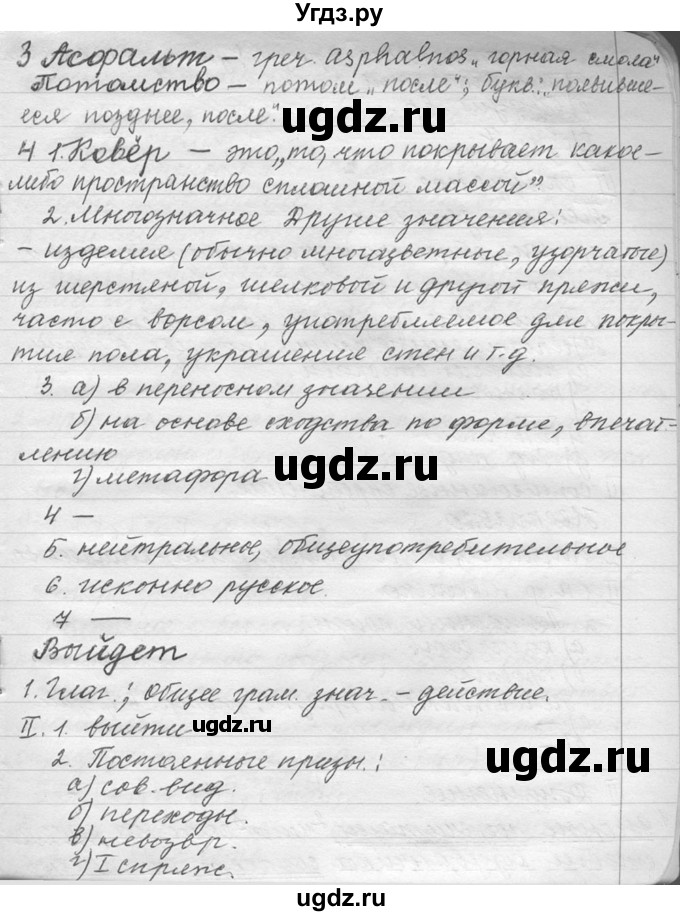 Угдз.ру
3 Асфальт – греч. asphavnos „горная смола“
Потомство – потом „после“; букв.: „появивше-
еся позднее, после“.
ugdz.ru
4 1. Ковёр – это „то, что покрывает какое-
либо пространство сплошной массой”
2. Многозначное Другие значения:
– изделия (обычно многоцветные, узорчатые)
из шерстяной, шелковой и другой пряжи,
часто с ворсом, употребляемое для покры-
тие пола, украшение стен и т.д.
ugdz.ru
3. а) в переносном значении
б) на основе сходства по форме, впечат-
лению
г) метафора
ugdz.ru
4 —
5. нейтральное, общеупотребительное
6. исконно русское.
7 —
Выйдет
1. Глаг.; Общее грам. знач. – действие.
II. 1. выйти
ugdz.ru
2. Постоянные призн.:
ugdz.ru
а) сов. вид.
б) переходн.
в) невозвр.
г) I спряж.
ugdz.ru
ugdz.ru